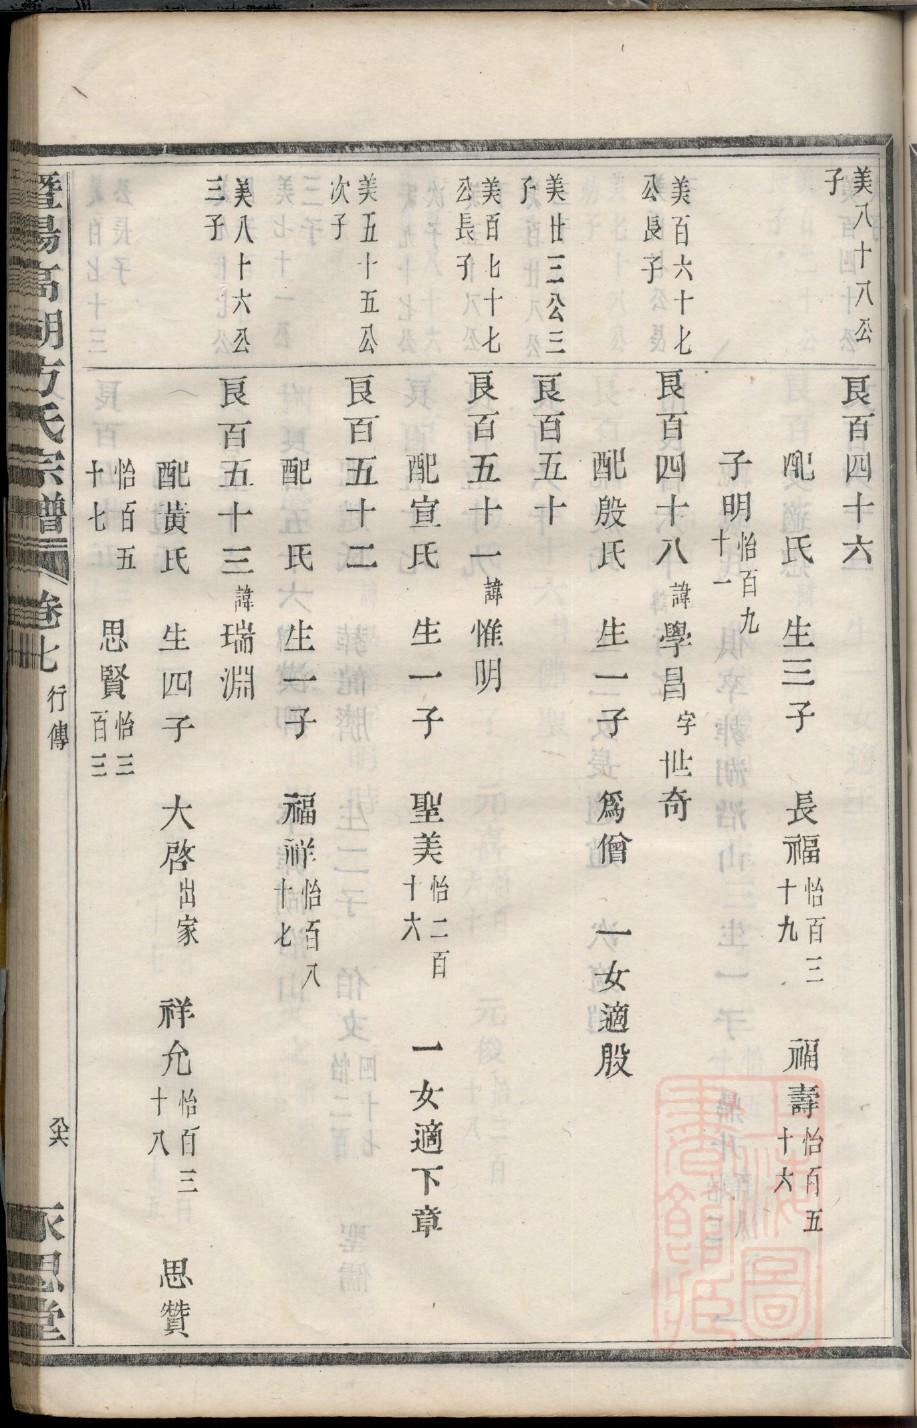 美八十八公
子
良百四十六
配氏　生三子　長福怡百三十九　福壽怡百五十六
子明怡百九十一
美百六十七
公長子
良百四十八諱學昌字世奇
配殷氏　生一子　爲僧　一女適殷
美廿三公三
子
良百五十
美百七十七
公長子
良百五十一諱惟明
配宣氏　生一子　聖美怡二百十六　一女適下章
美五十五公
次子
良百五十二
配氏　生一子　福祥怡百八十七
美八十六公
三子
良百五十三諱瑞淵
配黃氏　生四子　大啓出家　祥允怡百三十八　思贊
怡百五十七　思賢怡三百三
暨陽高湖方氏宗譜　卷七　行傳　六　永思堂